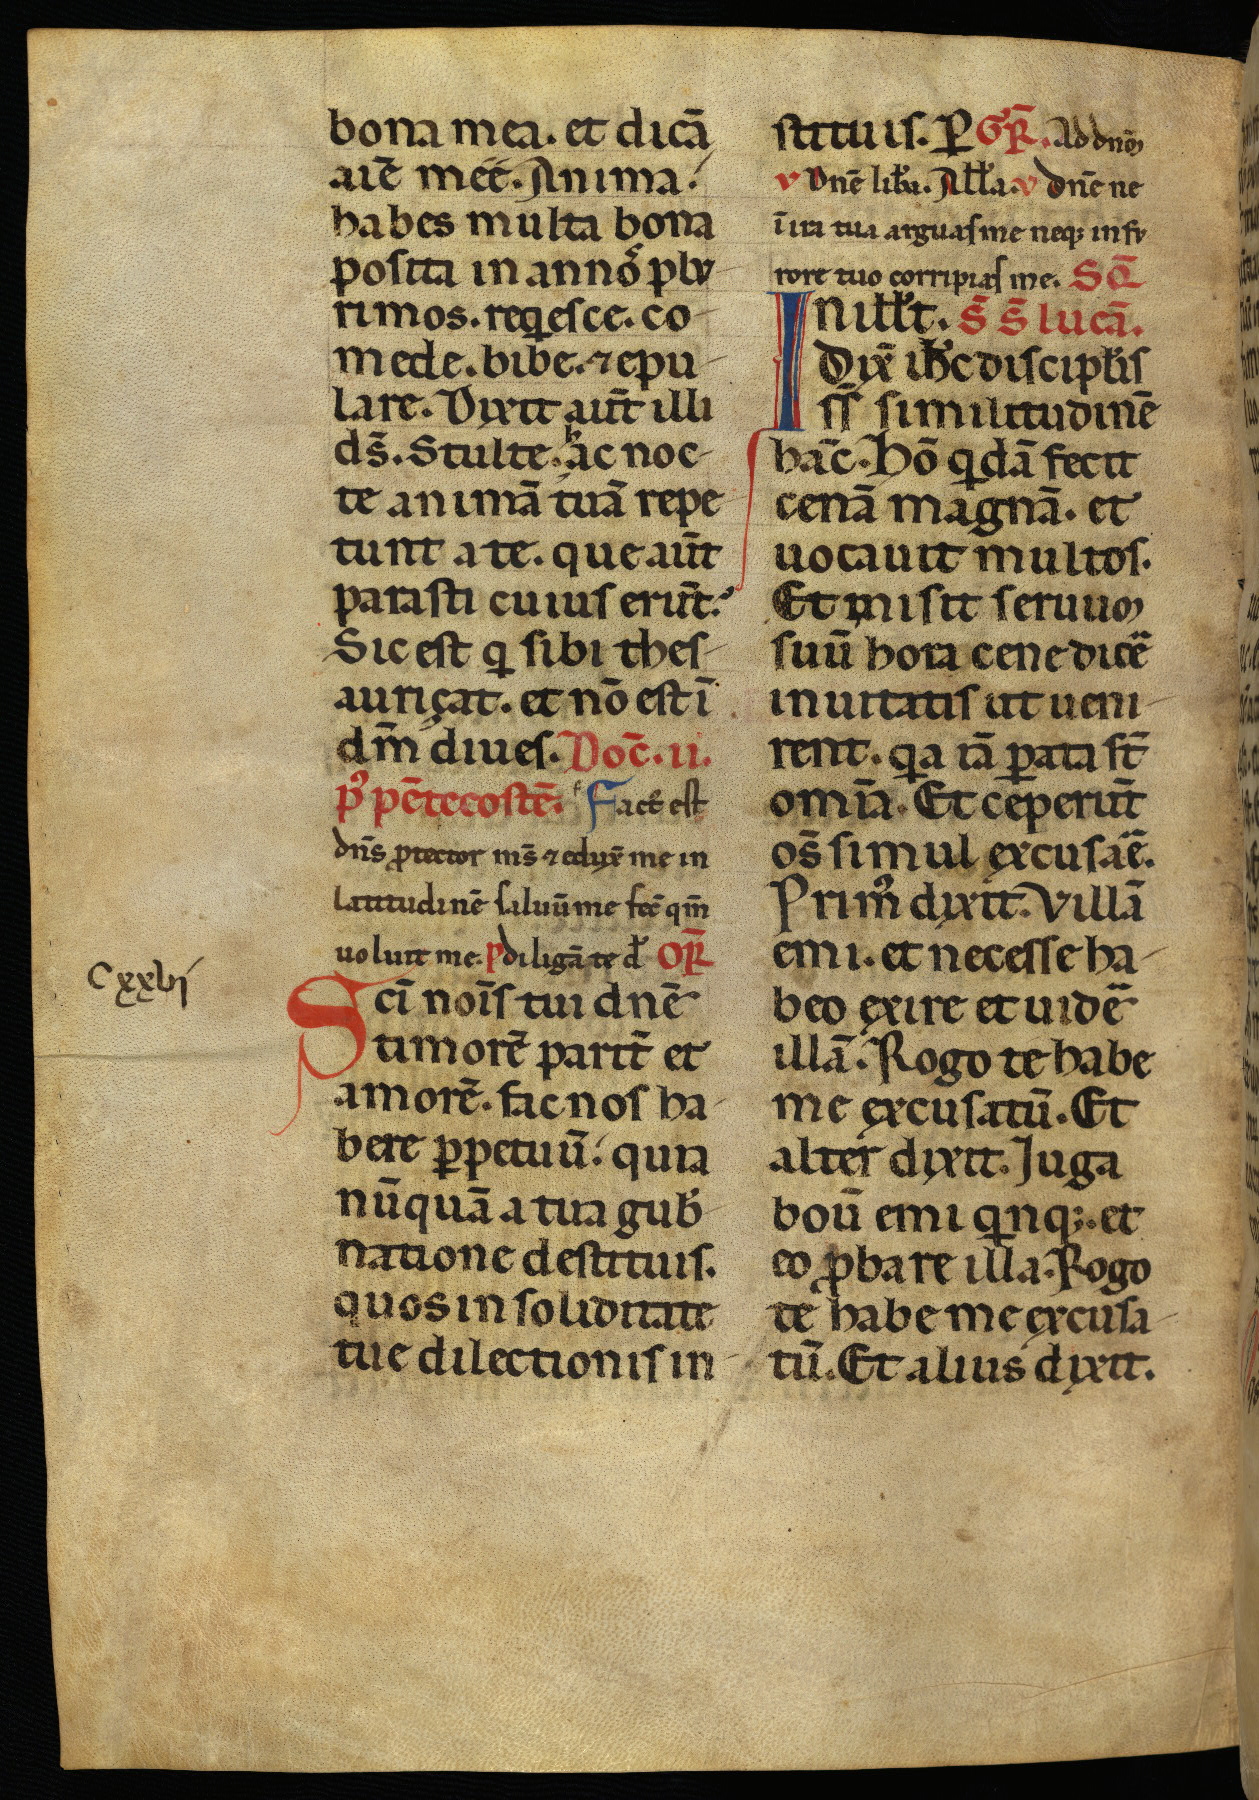 bona mea. et dicā
aīe męę. Anima.
habes multa bona
posita in annoˢ plu
rimos. reqͥesce. co
mede. bibe. ⁊ epu
lare. Dixit aūt illi
ds̄. Stulte. ħac noc
te animā tuā repe
tunt a te. que aūt
parasti cuius erūt.
Sic est qͥ sibi thes
auriçat. et nō est ī
dm̄ diues. Doc̄. ii.
p᷒ pētecostē. Fact᷒ est
dn̄s ꝓtector ms̄ ⁊ edux̄ me in
latitudinē saluū me fec̄ qm̄
uoluit me. p diligā te d OR̄
Cxxvij
Scī noīs tui dnē
timorē parit̄ et
amorē. fac nos ha
bere ꝑpetuū. quia
nūquā a tua gub̄
natione destituis.
quos in soliditate
tue dilectionis in
stituis. P̄ GR̄. Ad dnō
v Dnē lib̄a. All̄a. v dnē ne
ī ira tua arguas me neq; in fu
rore tuo corripias me. SC̄
In ill̄t. S̄ S̄ lucā.
Dix̄ ih̄c discipl̄is
ss̄ similitudinē
hāc. Hō qͥdā fecit
cenā magnā. et
uocauit multos.
Et misit seruuo
suū hora cene dicē
inuitatis ut ueni
rent. qͥa iā ꝑata st̄
omīa. Et ceperūt
os̄ simul excusāe.
Prim᷒ dixit. Villā
emi. et necesse ha
beo exire et uidē
illā. Rogo te habe
me excusatū. Et
alter dixit. Juga
boū emi qͥnq;. et
eo ꝓbare illa. Rogo
te habe me excusa
tū. Et alius dixit.